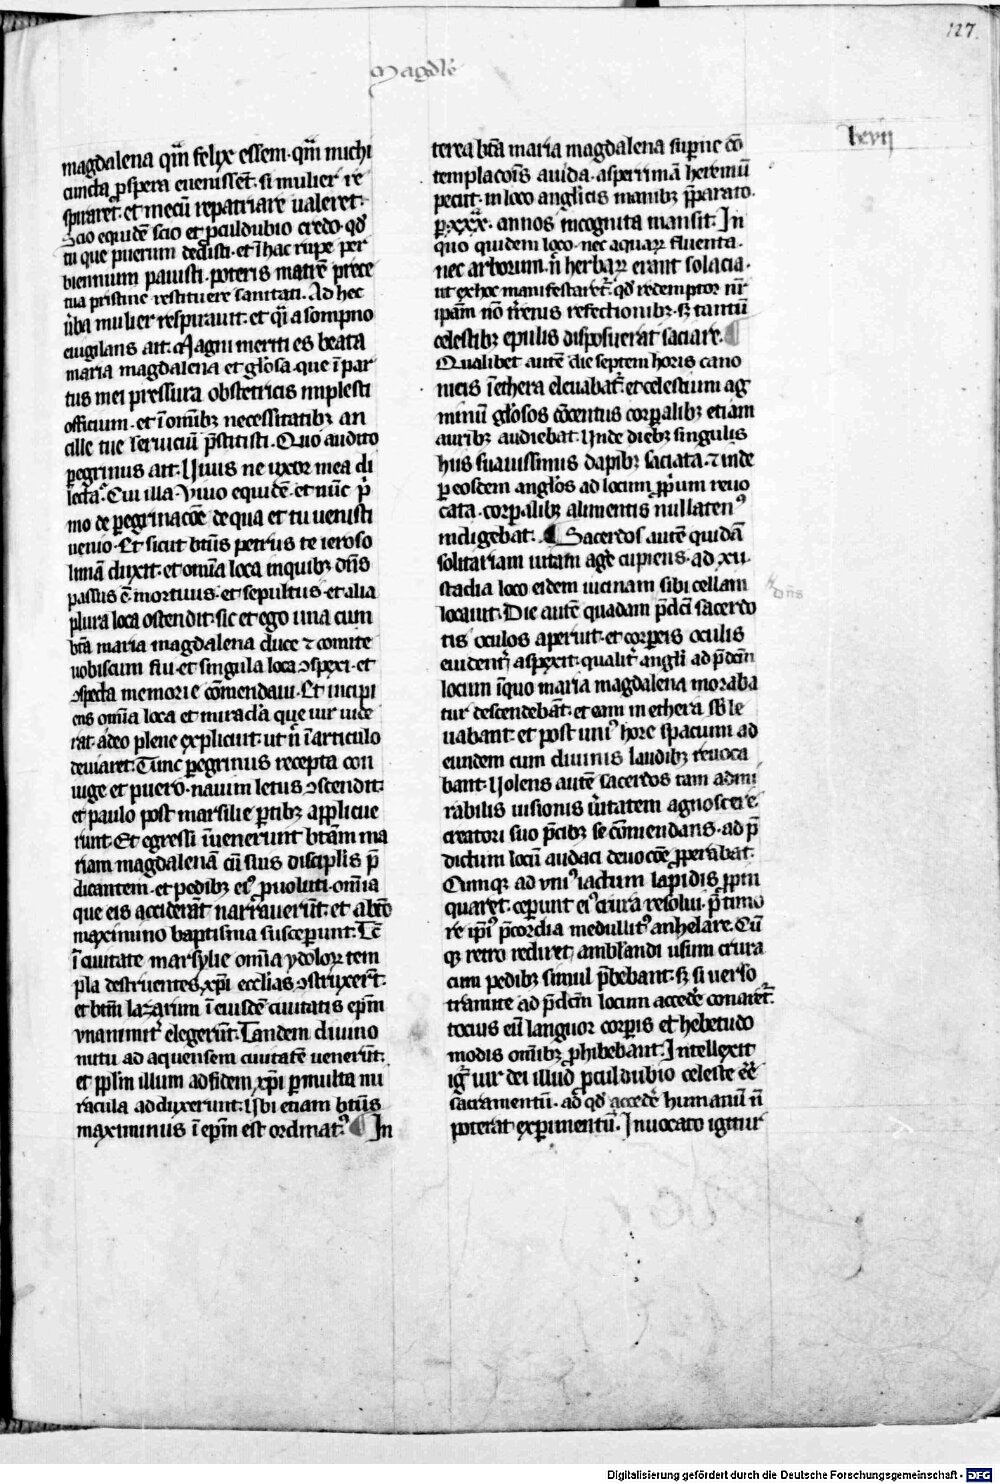 127
Magdale
lxvij
magdalena qm̄ felix essem· qm̄ michi
cuncta ꝓspera euenissēt· si mulier re
spiraret· et mecū repatriare valeret·
Scio equidē scio et ꝓculdubio credo· qd̄
tu que puerum dedisti· et ī hac rupe per
biennium pauisti· poteris matrē prece
tua pristine restituere sanitati. Ad hec
ūba mulier respirauit· et qͣi a sompno
euigilans ait· Magni meriti es beata
maria magdalena et gl̓osa· que ī par
tus mei pressura obstetricis implesti
officium· et ī om̄ibꝫ necessitatibꝫ an
cille tue seruiciū p̄stitisti· Quo audito
ꝑegrinus ait· Viuis ne uxor mea di
lecta· Cui illa· Viuo equidē· et nūc p̄
mo de ꝑegrinacōe de qua et tu uenisti
uenio· Et sicut bt̄us petrus te ieroso
limā duxit· et om̄ia loca inquibꝫ dn̄s
passus ē· mortuus· et sepultus· et alia
plura loca ostendit· sic et ego una cum
bt̄a maria magdalena duce ⁊ comite
uobiscum fui· et singula loca ꝯspexi· et
ꝯspecta memorie cōmendaui· Et incipi
ens om̄ia loca et miracl̓a que uir uide
rat· adeo plene explicuit· ut n̄ ī articulo
deuiaret· Tunc ꝑegrinus recepta con
iuge et puero· nauim letus ꝯscendit·
et paulo post marsilie ꝑtibꝫ applicue
runt· Et egressi īuenerunt bt̄am ma
riam magdalenā cū suis discipl̓is p̄
dicantem· et pedibꝫ eiꝰ ꝓuoluti· om̄ia
que eis acciderāt narrauerūt· et a bt̄o
maximino baptisma susceꝑunt· Tc̄
ī ciuitate marsylie om̄ia ydoloꝝ tem
pla destruentes xp̄i eccl̓ias ꝯstruxerūt·
et bt̄m lazarum ī eiusdē ciuitatis ep̄m
vnanimit̓ elegerūt· Tandem diuino
nutu ad aquensem ciuitatē uenerūt·
et ppl̄m illum ad fidem xp̄i ꝑ multa mi
racula adduxerunt· Vbi etiam bt̄us
maximinus ī ep̄m est ordinatꝰ· In
terea bt̄a maria magdalena suꝑne cō
templacōis auida· asperrimā heremū
peciit· in loco angl̓icis manibꝫ p̄parato·
ꝑ·xxx· annos incognita mansit· In
quo quidem loco· nec aquaꝝ fluenta·
nec arborum· n̄ herbaꝝ erant solacia·
ut ex hoc manifestaret̓· qd̄ redemptor nr̄
ipām nō t̓renis refectionibꝫ· sꝫ tantū
celestibꝫ epulis disposuerat saciare·
Qualibet autē die septem horis cano
nicis ī ethera eleuabat̓· et celestium ag
minū gl̓osos cōcentus corꝑalibꝫ etiam
auribꝫ audiebat· Vnde diebꝫ singulis
hiis suauissimis dapibꝫ saciata· ⁊ inde
ꝑ eosdem angl̓os ad locum ꝓprium reuo
cata· corꝑalibꝫ alimentis nullatenꝰ
indigebat· Sacerdos autē quidā
solitariam uitam agē cupiens· ad xii·
stadia loco eidem uicinam sibi cellam
locauit· Die autē quadam p̄dc̄i sacerdo
dn̄s
tis oculos aperuit· et corꝑeis oculis
euident̓ aspexit· qualit̓ angl̓i ad p̄dc̄m
locum ī quo maria magdalena moraba
tur descendebāt· et eam in ethera sb̓le
uabant· et post uniꝰ hore spacium ad
eundem cum diuinis laudibꝫ reuoca
bant· Volens autē sacerdos tam admi
rabilis uisionis ūitatem agnoscere·
creatori suo p̄cibꝫ se cōmendans· ad p̄
dictum locū audaci deuocōe ꝓperabat·
Cumqꝫ ad vniꝰ iactum lapidis ꝓpin
quaret· ceꝑunt eiꝰ crura resolui· p̄ timo
re ip̄iꝰ p̄cordia medullitꝰ anhelare· Cū
qꝫ retro rediret· amblandi usum crura
cum pedibꝫ simul p̄bebant· sꝫ si uerso
tramite ad p̄dc̄m locum accedē conaret̓·
tocius eū languor corꝑis et hebetudo
modis om̄ibꝫ ꝓhibebant· Intellexit
ig̓ uir dei illud ꝓculdubio celeste ēē
sacramentū· ad qd̄ accedē humanū n̄
poterat exꝑimentū· Inuocato igitur
Digitalisierung gefördert durch die Deutsche Forschungsgemeinschaft - DFG